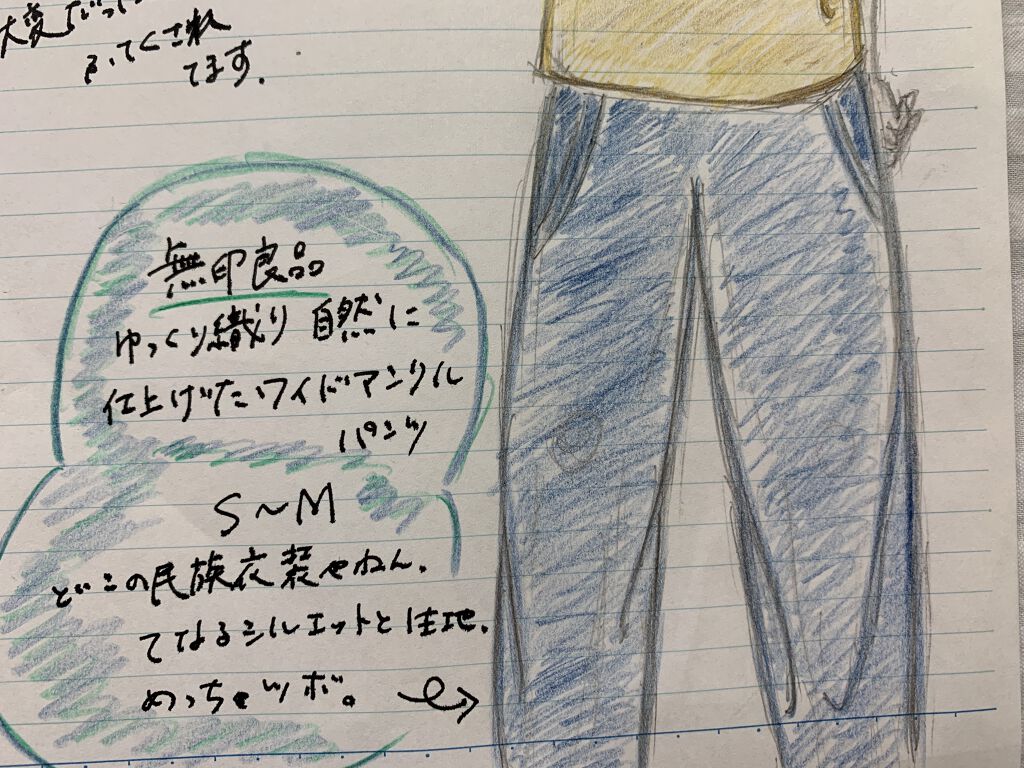 大変
てくされ
てます.
無印良品
ゆっくり織り 自然に
仕上げたワイドアンクル
パンツ
S~M
どこの民族衣装やねん.
てなるシルエットと生地.
めっちゃツボ。